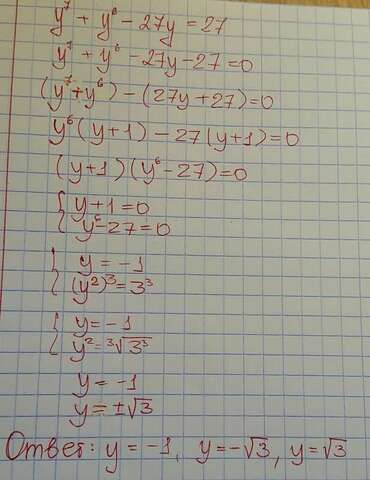 y⁷ + y⁶ - 27y = 27
y⁷ + y⁶ - 27y - 27 = 0
(y⁷ + y⁶) - (27y + 27) = 0
y⁶(y+1) - 27(y+1) = 0
(y+1)(y⁶-27) = 0
{ y+1=0
y⁶-27=0
{ y = -1
(y²)³ = 3³
{ y = -1
y² = ³√3³
y = -1
y = ±√3
Ответ: y = -1, y = -√3, y = √3